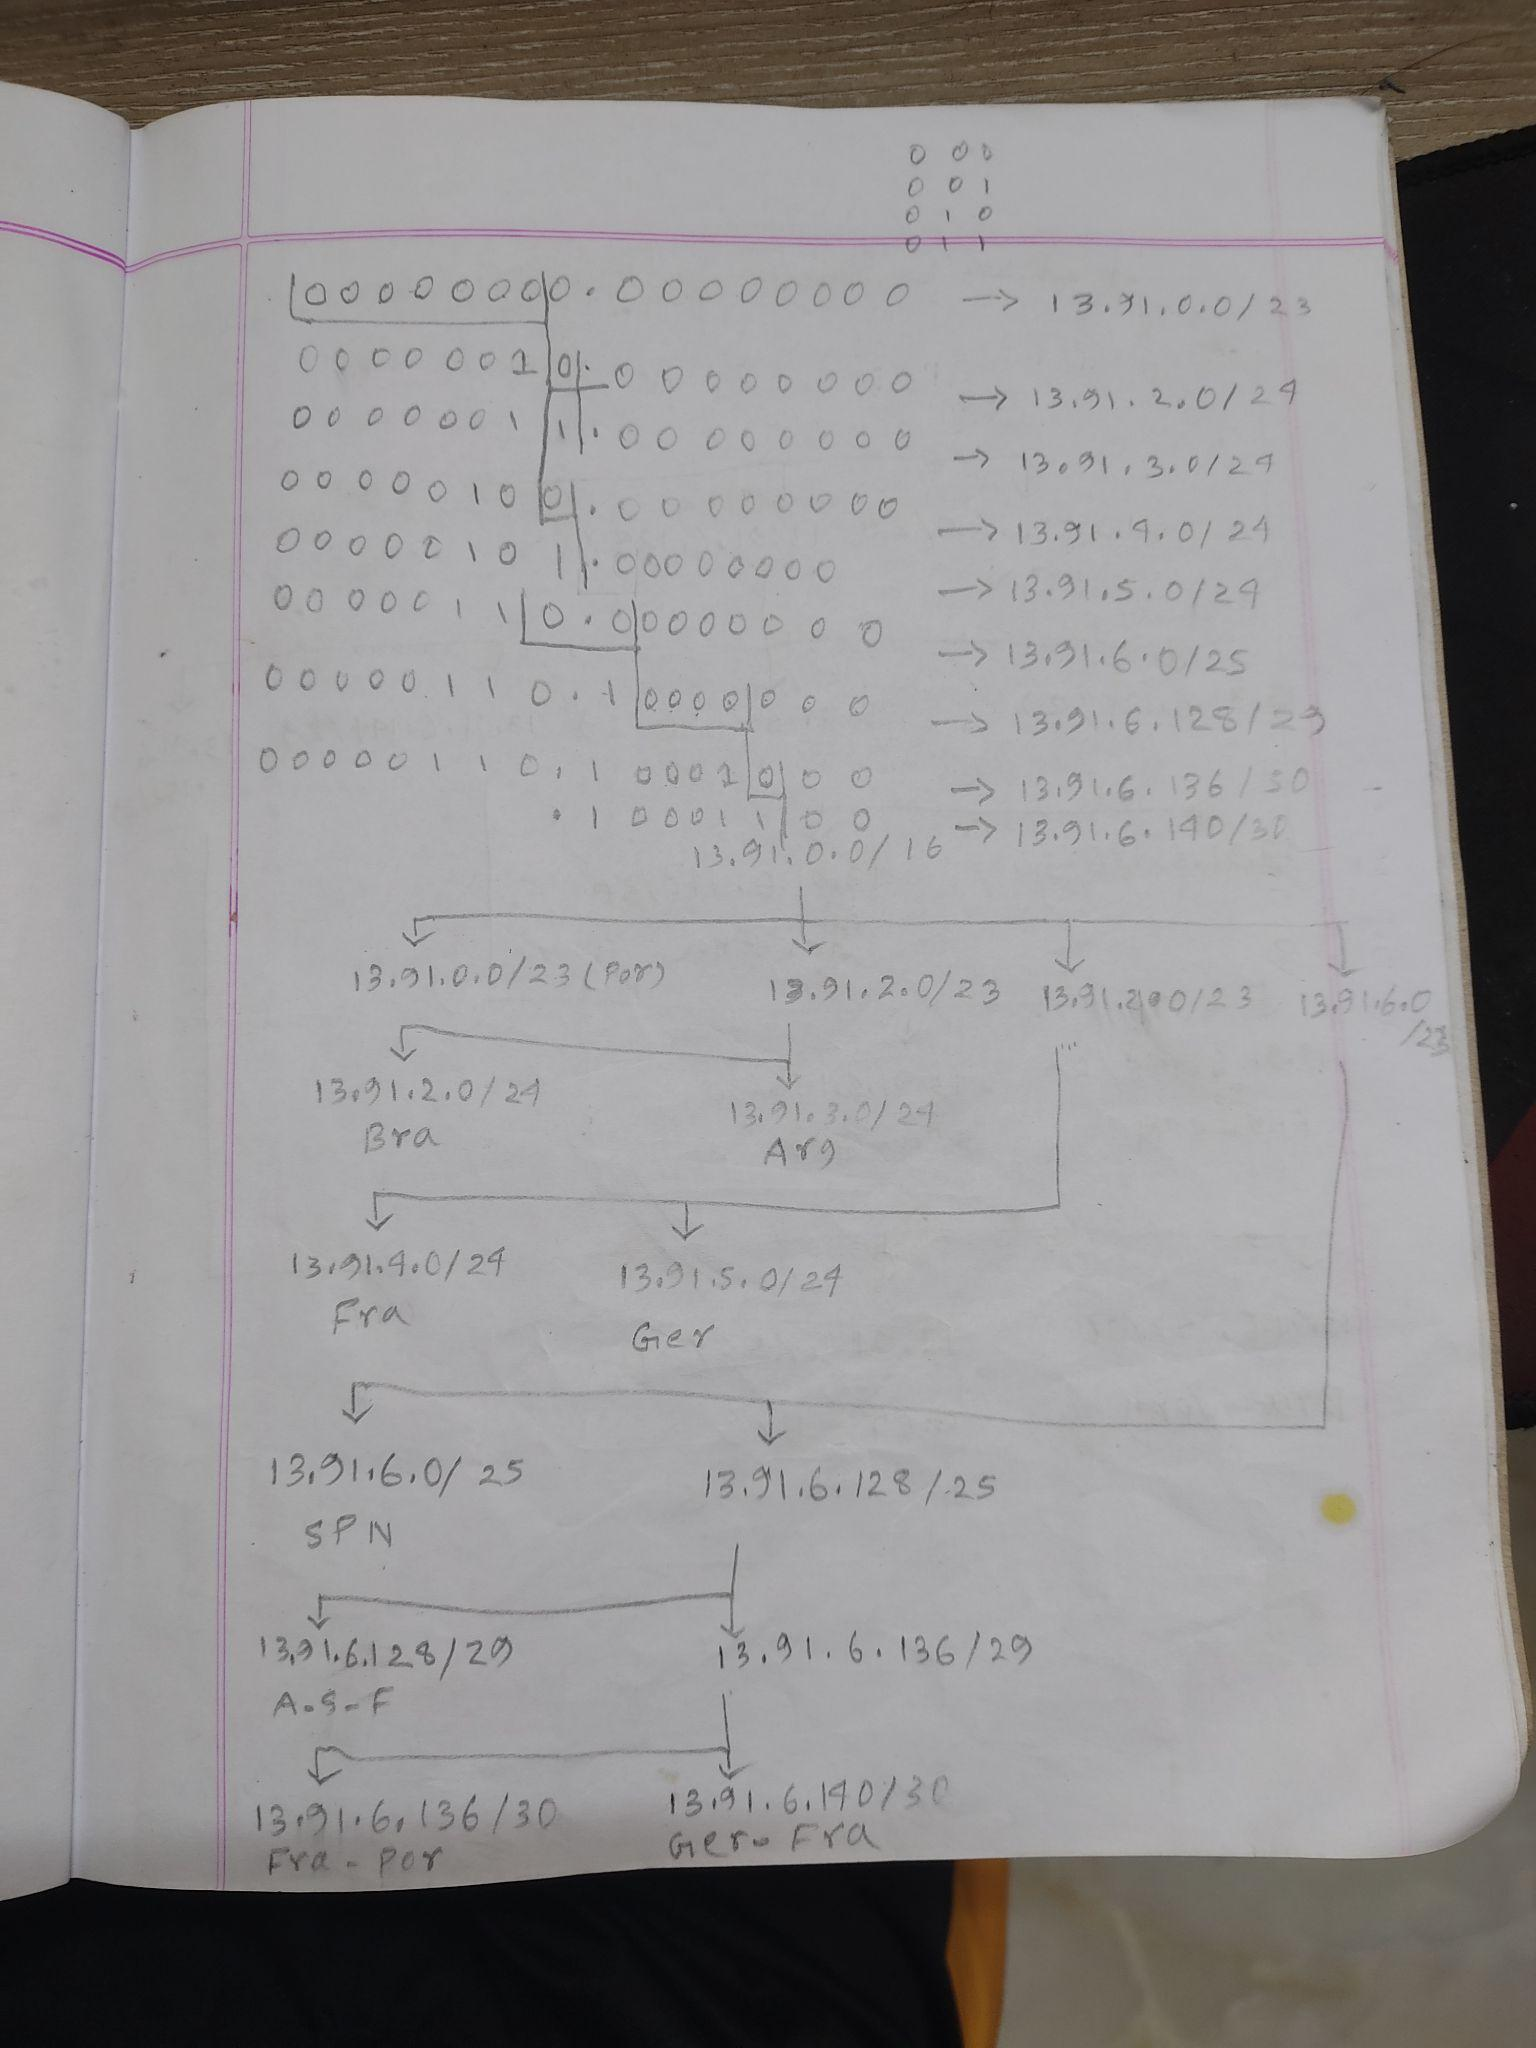 0 0 0
0 0 1
0 1 0
0 1 1
0 0 0 0 0 0 0 0 . 0 0 0 0 0 0 0 0 → 13.91.0.0/23
0 0 0 0 0 0 1 0 . 0 0 0 0 0 0 0 0 → 13.91.2.0/24
0 0 0 0 0 0 1 1 . 0 0 0 0 0 0 0 0 → 13.91.3.0/24
0 0 0 0 0 1 0 0 . 0 0 0 0 0 0 0 0 → 13.91.4.0/24
0 0 0 0 0 1 0 1 . 0 0 0 0 0 0 0 0 → 13.91.5.0/24
0 0 0 0 0 1 1 0 . 0 0 0 0 0 0 0 0 → 13.91.6.0/25
0 0 0 0 0 1 1 0 . 1 0 0 0 0 0 0 0 → 13.91.6.128/29
0 0 0 0 0 1 1 0 . 1 0 0 0 1 0 0 0 → 13.91.6.136/30
. 1 0 0 0 1 1 0 0 → 13.91.6.140/30
13.91.0.0/16
13.91.0.0/23 (Por) 13.91.2.0/23 /23 13.91.6.0
/23
13.91.2.0/24 13.91.3.0/24
Bra Arg
13.91.4.0/24 13.91.5.0/24
Fra Ger
13.91.6.0/25 13.91.6.128/25
SPN
13.91.6.128/29 13.91.6.136/29
A-S-F
13.91.6.136/30 13.91.6.140/30
Fra - Por Ger - Fra